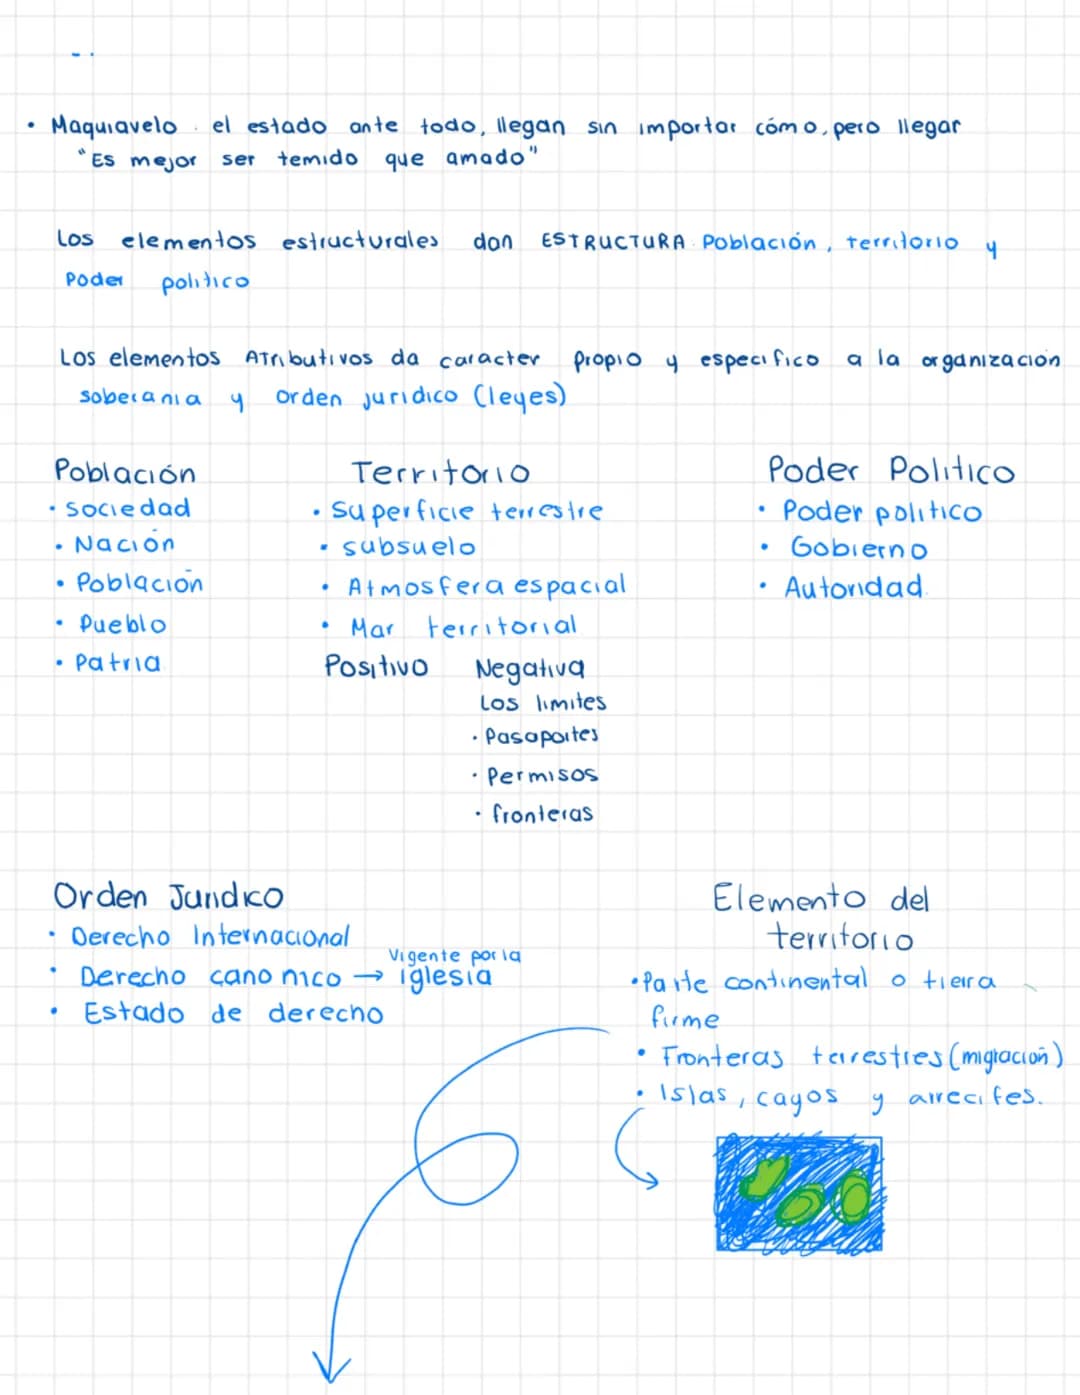 • Maquiavelo. el estado ante todo, llegan sin importar cómo, pero llegar
"Es mejor ser temido que amado"
Los elementos estructurales dan ESTRUCTURA. Población, territorio y
Poder politico
Los elementos Atributivos da caracter propio y especifico a la organización
soberania y Orden juridico (leyes)
Población
• Sociedad
• Nación
• Población
• Pueblo
• Patria
Territorio
• Superficie terrestre
• subsuelo
• Atmosfera espacial
• Mar territorial
Positivo Negativa
Los limites
• Pasaportes
• Permisos
• fronteras
Poder Politico
• Poder politico
• Gobierno
• Autoridad.
Orden Juridico
• Derecho Internacional
• Derecho canonico → Vigente por la
iglesia
• Estado de derecho
Elemento del
territorio
• Parte continental o tierra
firme
• Fronteras terrestres (migración)
• Islas, cayos y arrecifes.